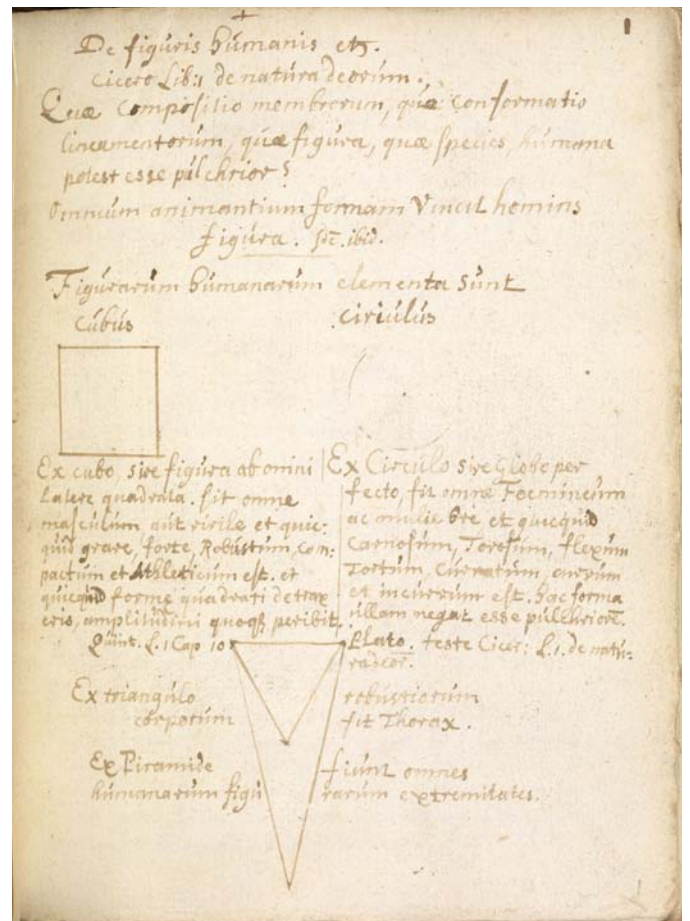 1
De figúris húmanis etc.
Cicero Lib: 1 de natúra deorúm.
Quæ Compositio membrorum, quæ Conformatio
lineamentorúm, quæ figúra, quæ species húmana
potest esse púlchrior?
Omniúm animantiúm formam Vincit hominis
figúra. ibid.
Figúrarúm húmanarúm elementa Súnt
Cúbús
Circúlús
Ex cubo, sive figúra ab omni
Latere quadrata. fit omne
mascúlúm aút virile et quic:
quid grave, forte, Robústúm, Com-
pactúm et Athleticúm est. et
quicquid formæ quadrati detrax
eris, amplitúdini quoq3 peribit.
Quint. L. 1 Cap 10
Ex Circúlo sive Globo per
fecto, fit omne Foemineúm
ac muliebre et quicquid
Carnosúm, Torosúm, flexúm
Tortúm, Cúrvatúm,
et incúrvúm est. hac forma
úllam negat esse púlchriorē.
Plato. teste Cicer: L. 1. de natú:
ra deor.
Ex triangúlo robústiorúm
corporúm fit Thorax.
Ex Piramide fiúnt omnes
húmanarúm figú rarúm extremitates.